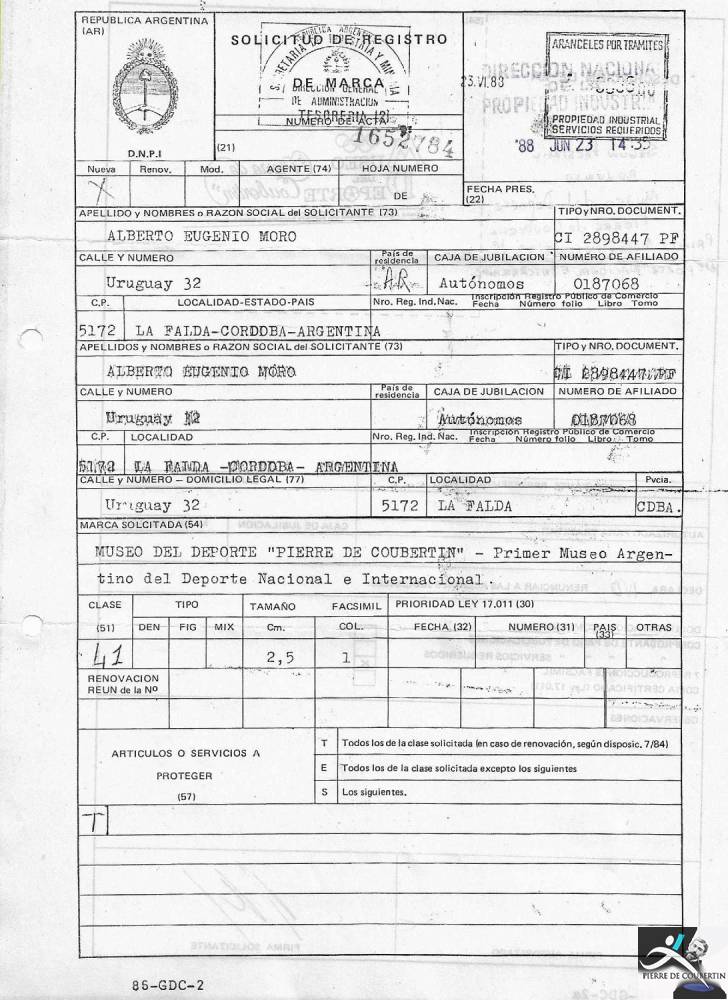 REPUBLICA ARGENTINA
(AR)
SOLICITUD DE REGISTRO
DE MARCA
DIRECCION GENERAL
DE ADMINISTRACION
TESORERIA
NUMERO DE ACTA
1652784
(21)
D.N.P.I
23.VI.88
DIRECCION NACIONAL
DE LA
PROPIEDAD INDUSTRIAL
ARANCELES POR TRAMITES
PROPIEDAD INDUSTRIAL
SERVICIOS REQUERIDOS
'88 JUN 23 14:35
FECHA PRES.
(22)
Nueva Renov. Mod. AGENTE (74) HOJA NUMERO
X DE
APELLIDO y NOMBRES o RAZON SOCIAL del SOLICITANTE (73) TIPO y NRO. DOCUMENT.
ALBERTO EUGENIO MORO CI 2898447 PF
CALLE Y NUMERO País de residencia CAJA DE JUBILACION NUMERO DE AFILIADO
Uruguay 32 AR Autónomos 0187068
C.P. LOCALIDAD-ESTADO-PAIS Nro. Reg. Ind. Nac. Inscripción Registro Público de Comercio
Fecha Número folio Libro Tomo
5172 LA FALDA-CORDDBA-ARGENTINA
APELLIDOS y NOMBRES o RAZON SOCIAL del SOLICITANTE (73) TIPO y NRO. DOCUMENT.
ALBERTO EUGENIO MORO CI 2898447 PF
CALLE y NUMERO País de residencia CAJA DE JUBILACION NUMERO DE AFILIADO
Uruguay Autónomos 0187068
C.P. LOCALIDAD Nro. Reg. Ind. Nac. Inscripción Registro Público de Comercio
Fecha Número folio Libro Tomo
5172 LA FALDA -CORDDBA- ARGENTINA
CALLE y NUMERO – DOMICILIO LEGAL (77) C.P. LOCALIDAD Pvcia.
Uruguay 32 5172 LA FALDA CDBA.
MARCA SOLCITADA (54)
MUSEO DEL DEPORTE "PIERRE DE COUBERTIN" - Primer Museo Argen-
tino del Deporte Nacional e Internacional.
CLASE TIPO TAMAÑO FACSIMIL PRIORIDAD LEY 17.011 (30)
(51) DEN FIG MIX Cm. COL. FECHA (32) NUMERO (31) PAIS (33) OTRAS
41 2,5 1
RENOVACION
REUN de la Nº
ARTICULOS O SERVICIOS A
PROTEGER
(57)
T Todos los de la clase solicitada (en caso de renovación, según disposic. 7/84)
E Todos los de la clase solicitada excepto los siguientes
S Los siguientes.
T
86-GDC-2
PIERRE DE COUBERTIN